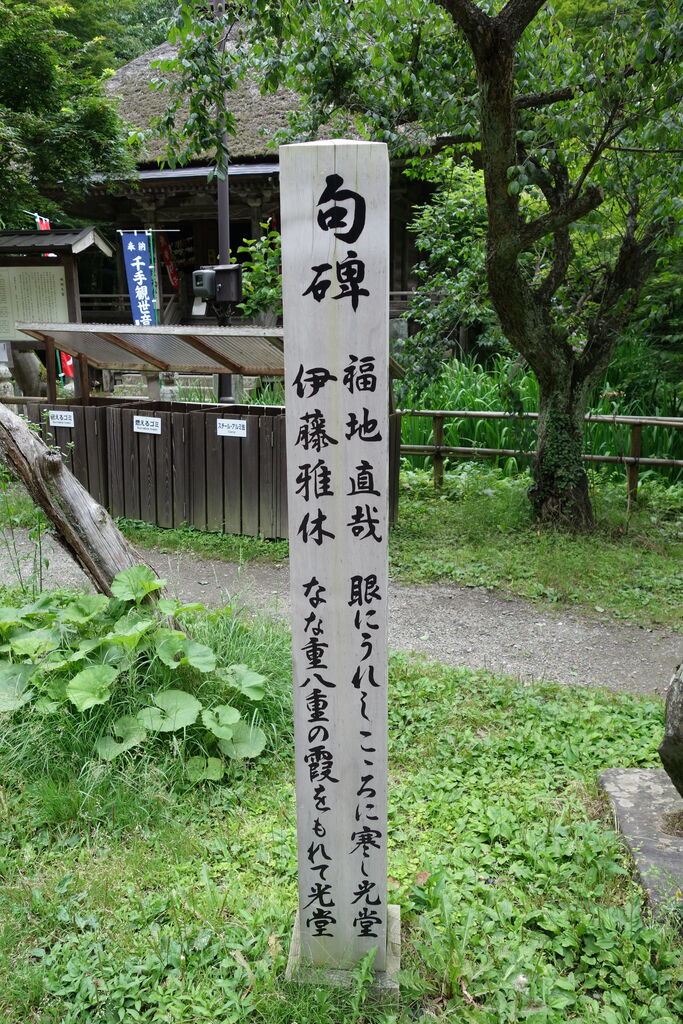 句碑
福地直哉 眼にうれしこころに寒し光堂
伊藤雅休 なな重八重の霞をもれて光堂
奉納
千手観世音
燃えるゴミ
スチール・アルミ缶